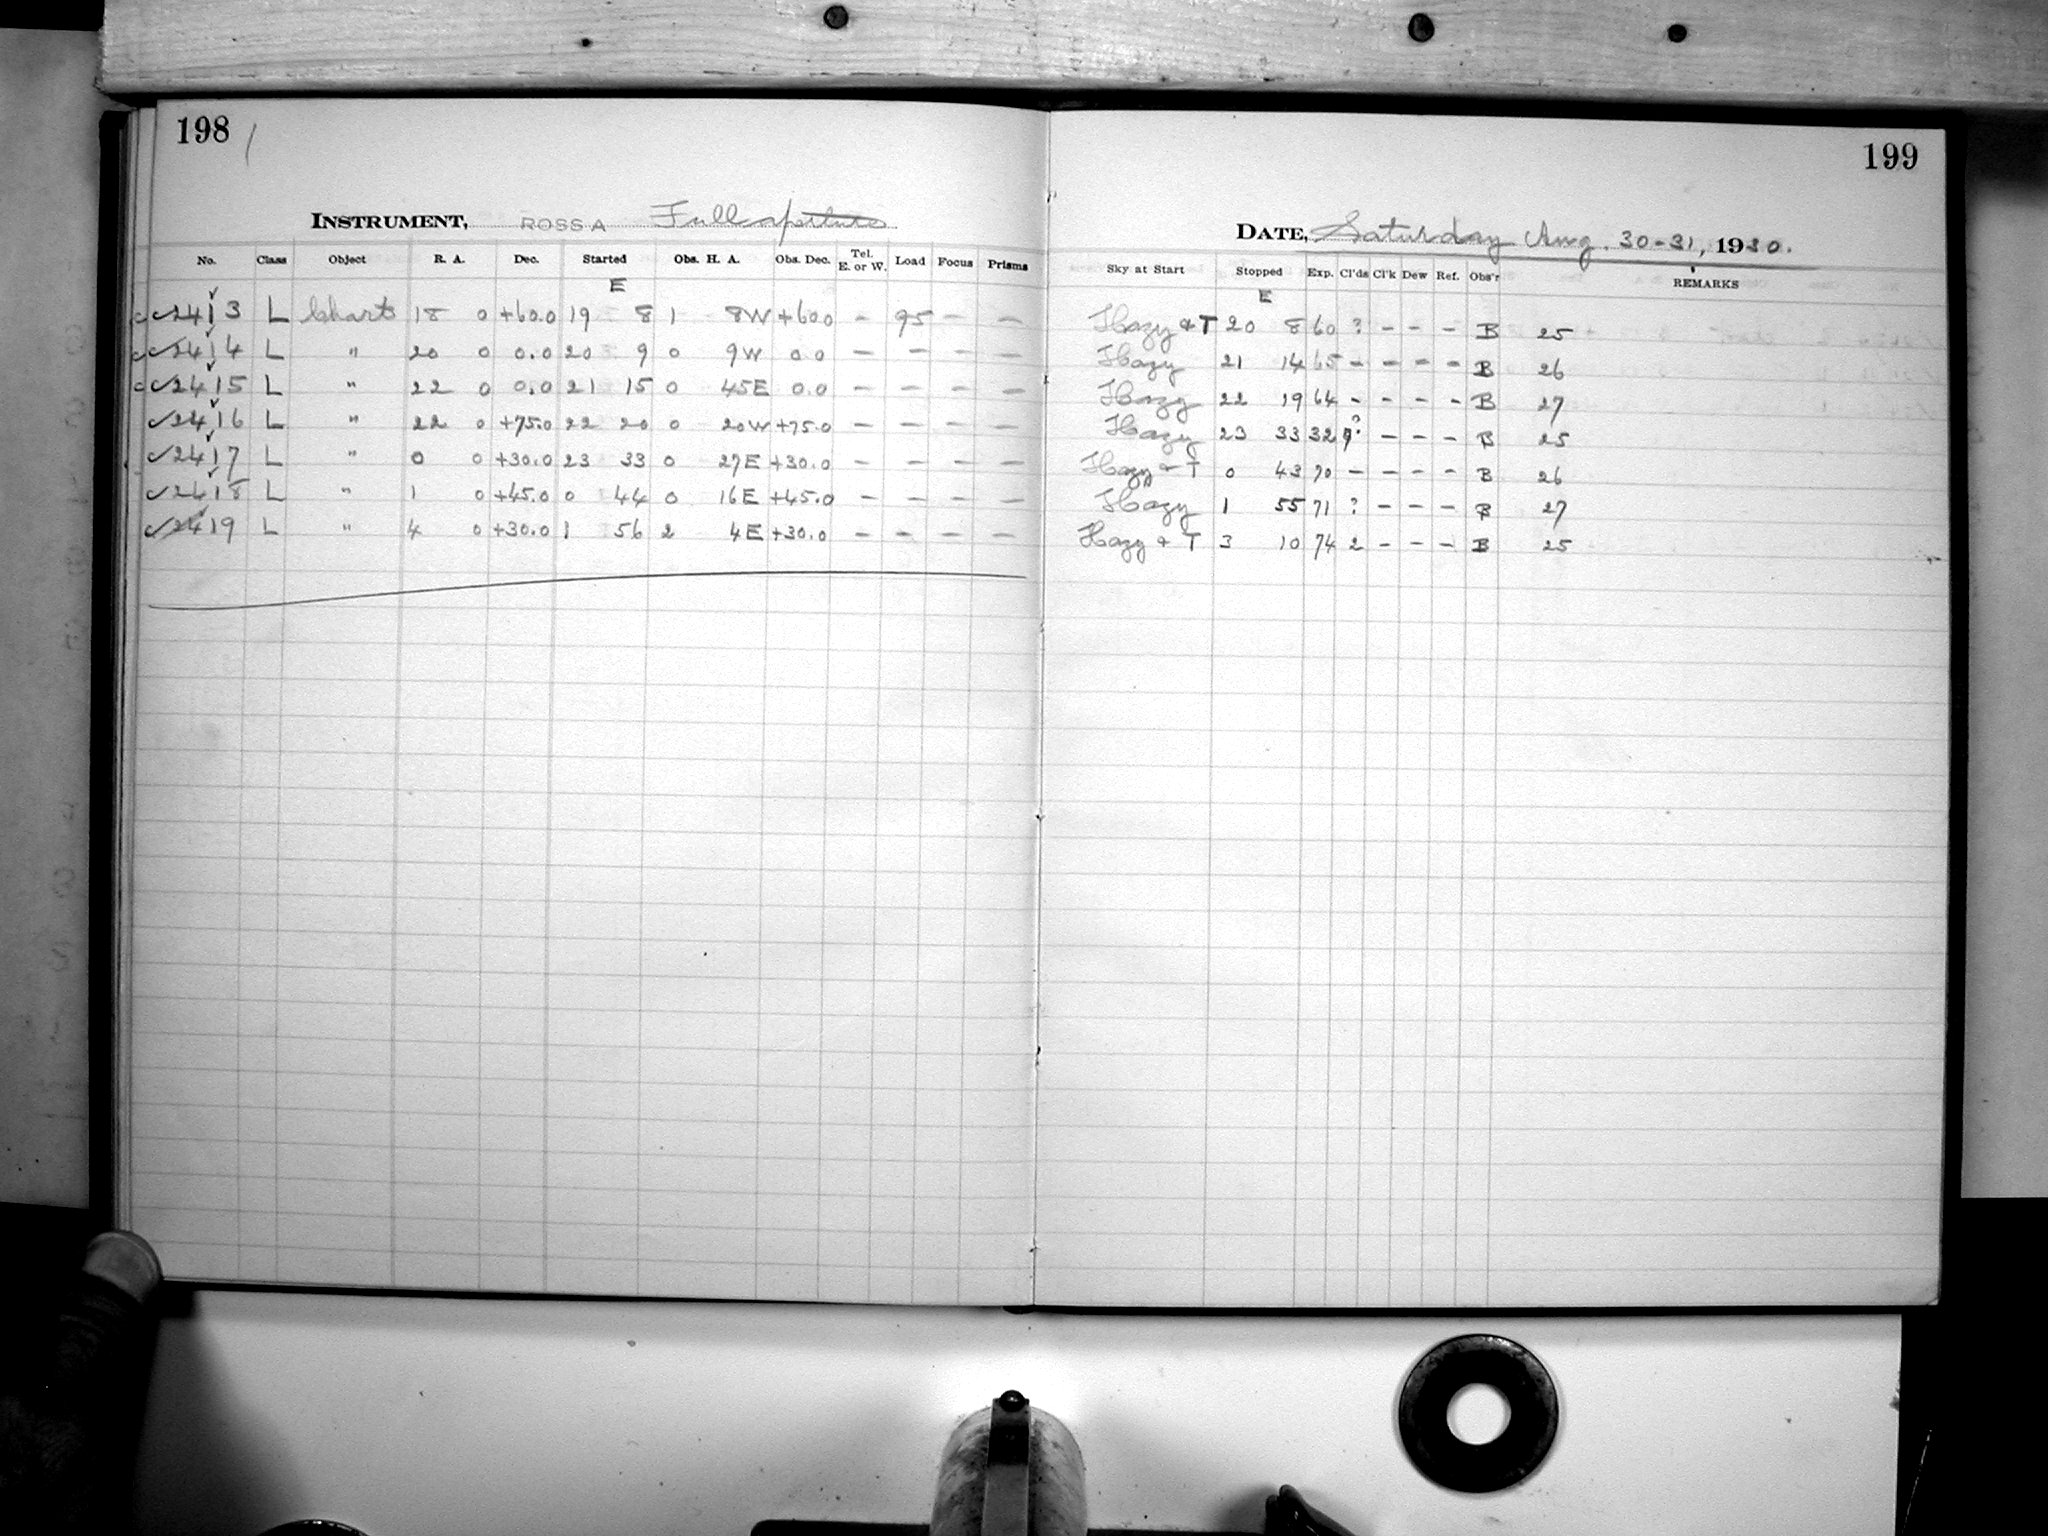 198
INSTRUMENT, ROSS A Full aperture
No. Class Object R. A. Dec. Started Obs. H. A. Obs. Dec. Tel. E. or W. Load Focus Prisms
E
2413 L Charts 18 0 +60.0 19 8 1 8W +60.0 - 95 - -
2414 L " 20 0 0.0 20 9 0 9W 0.0 - - - -
2415 L " 22 0 0.0 21 15 0 45E 0.0 - - - -
2416 L " 22 0 +75.0 22 20 0 20W +75.0 - - - -
2417 L " 0 0 +30.0 23 33 0 27E +30.0 - - - -
2418 L " 1 0 +45.0 0 44 0 16E +45.0 - - - -
2419 L " 4 0 +30.0 1 56 2 4E +30.0 - - - -
199
DATE, Saturday Aug. 30-31, 1930.
Sky at Start Stopped Exp. Cl'ds Cl'k Dew Ref. Obs'r REMARKS
E
Hazy + T 20 8 60 ? - - - B 25
Hazy 21 14 65 - - - - B 26
Hazy 22 19 64 - - - - B 27
Hazy 23 33 32 ? - - - B 25
Hazy + T 0 43 70 - - - - B 26
Hazy 1 55 71 ? - - - B 27
Hazy + T 3 10 74 2 - - - B 25